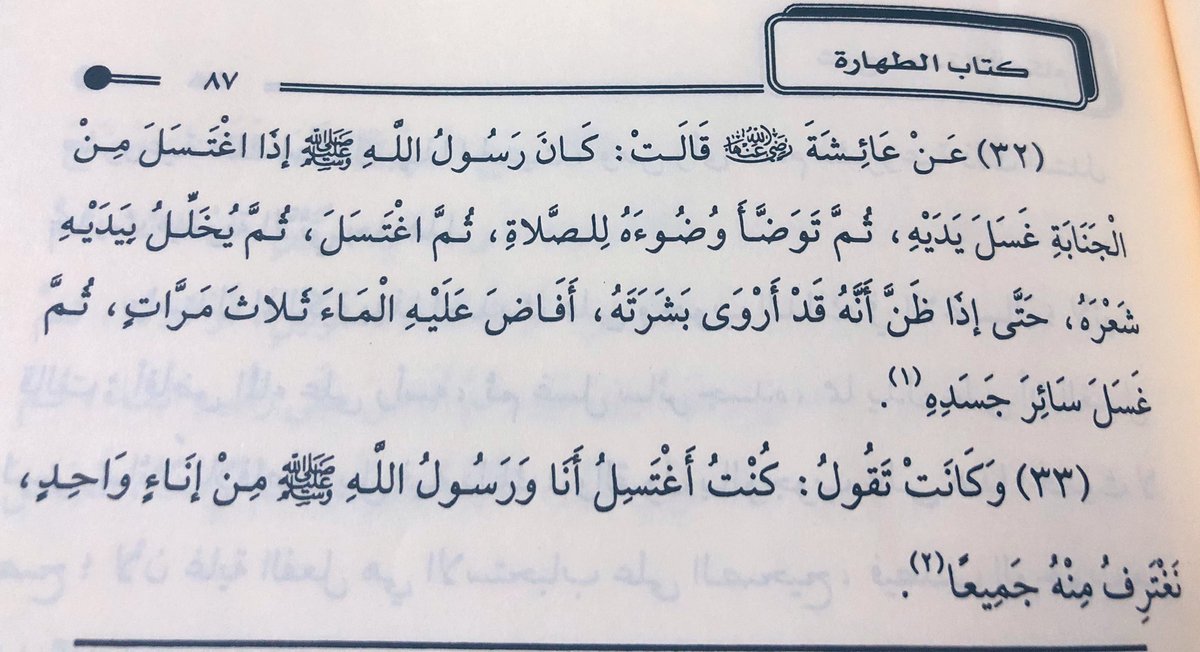 كتاب الطهارة
٨٧
(٣٢) عَنْ عَائِشَةَ رضي الله عنها قَالَتْ: كَانَ رَسُولُ اللَّهِ ﷺ إِذَا اغْتَسَلَ مِنْ
الْجَنَابَةِ غَسَلَ يَدَيْهِ، ثُمَّ تَوَضَّأَ وُضُوءَهُ لِلصَّلاةِ، ثُمَّ اغْتَسَلَ، ثُمَّ يُخَلِّلُ بِيَدَيْهِ
شَعْرَهُ، حَتَّى إِذَا ظَنَّ أَنَّهُ قَدْ أَرْوَى بَشَرَتَهُ، أَفَاضَ عَلَيْهِ الْمَاءَ ثَلاثَ مَرَّاتٍ، ثُمَّ
غَسَلَ سَائِرَ جَسَدِهِ(١).
(٣٣) وَكَانَتْ تَقُولُ: كُنْتُ أَغْتَسِلُ أَنَا وَرَسُولُ اللَّهِ ﷺ مِنْ إِنَاءٍ وَاحِدٍ،
نَغْتَرِفُ مِنْهُ جَمِيعًا(٢).